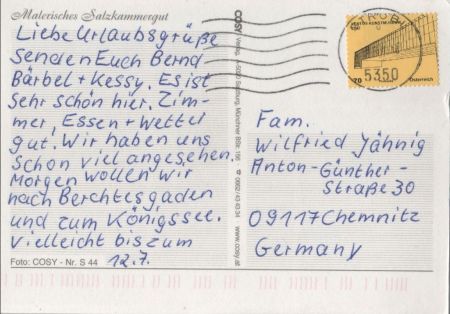 Malerisches Salzkammergut
Liebe Urlaubsgrüße
senden Euch Bernd
Bärbel + Kessy. Es ist
sehr schön hier. Zim-
mer, Essen + Wetter
gut. Wir haben uns
schon viel angesehen.
Morgen wollen wir
nach Berchtesgaden
und zum Königssee.
Vielleicht bis zum
12.7.
Foto: COSY - Nr. S 44
COSY
www.cosy.at
5350
70
Österreich
Fam.
Wilfried Jähnig
Anton-Günther-
Straße 30
09117 Chemnitz
Germany